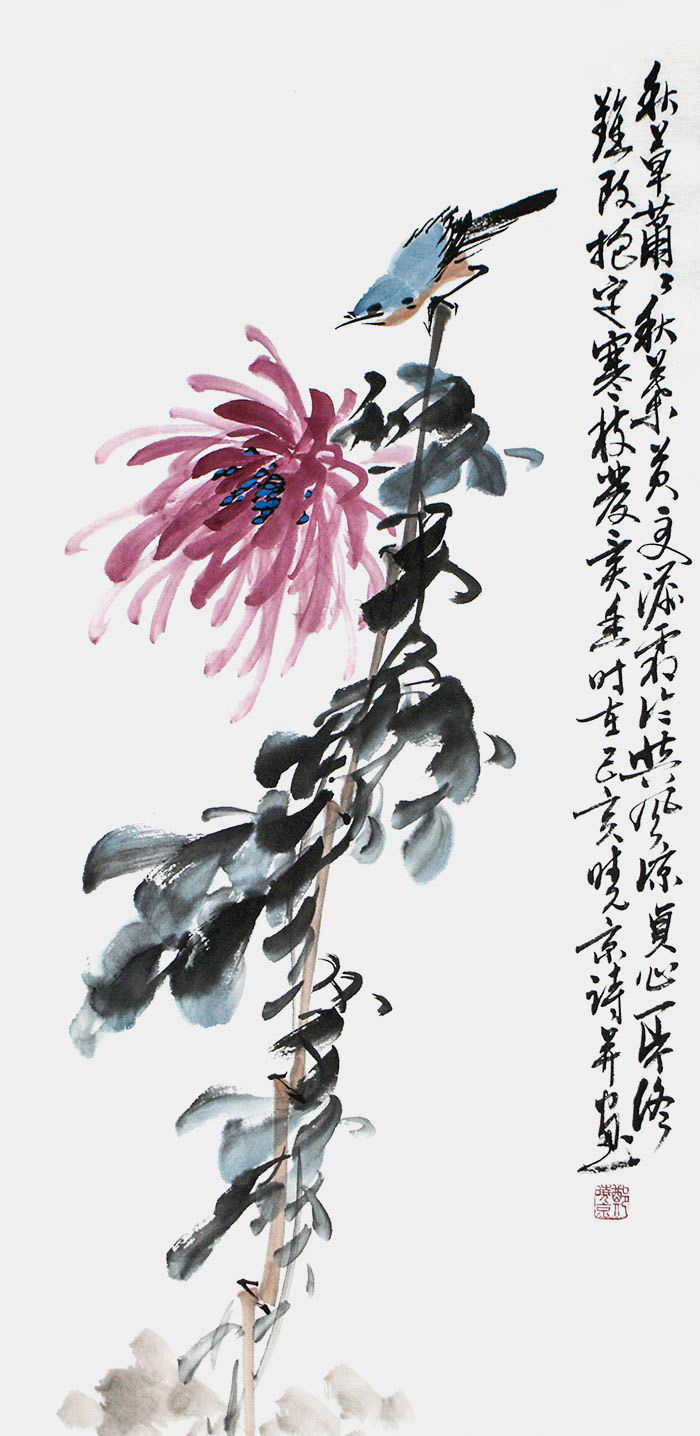 秋草萧々秋叶黄更添霜冷与风凉贞心一片终
难改抱定寒枝发异香时在己亥晓京诗并画
郑晓京